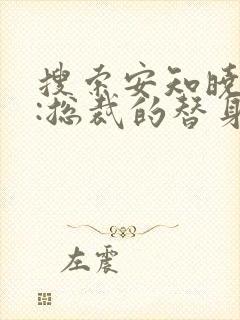 搜索安知晓
:总裁的替身
左震